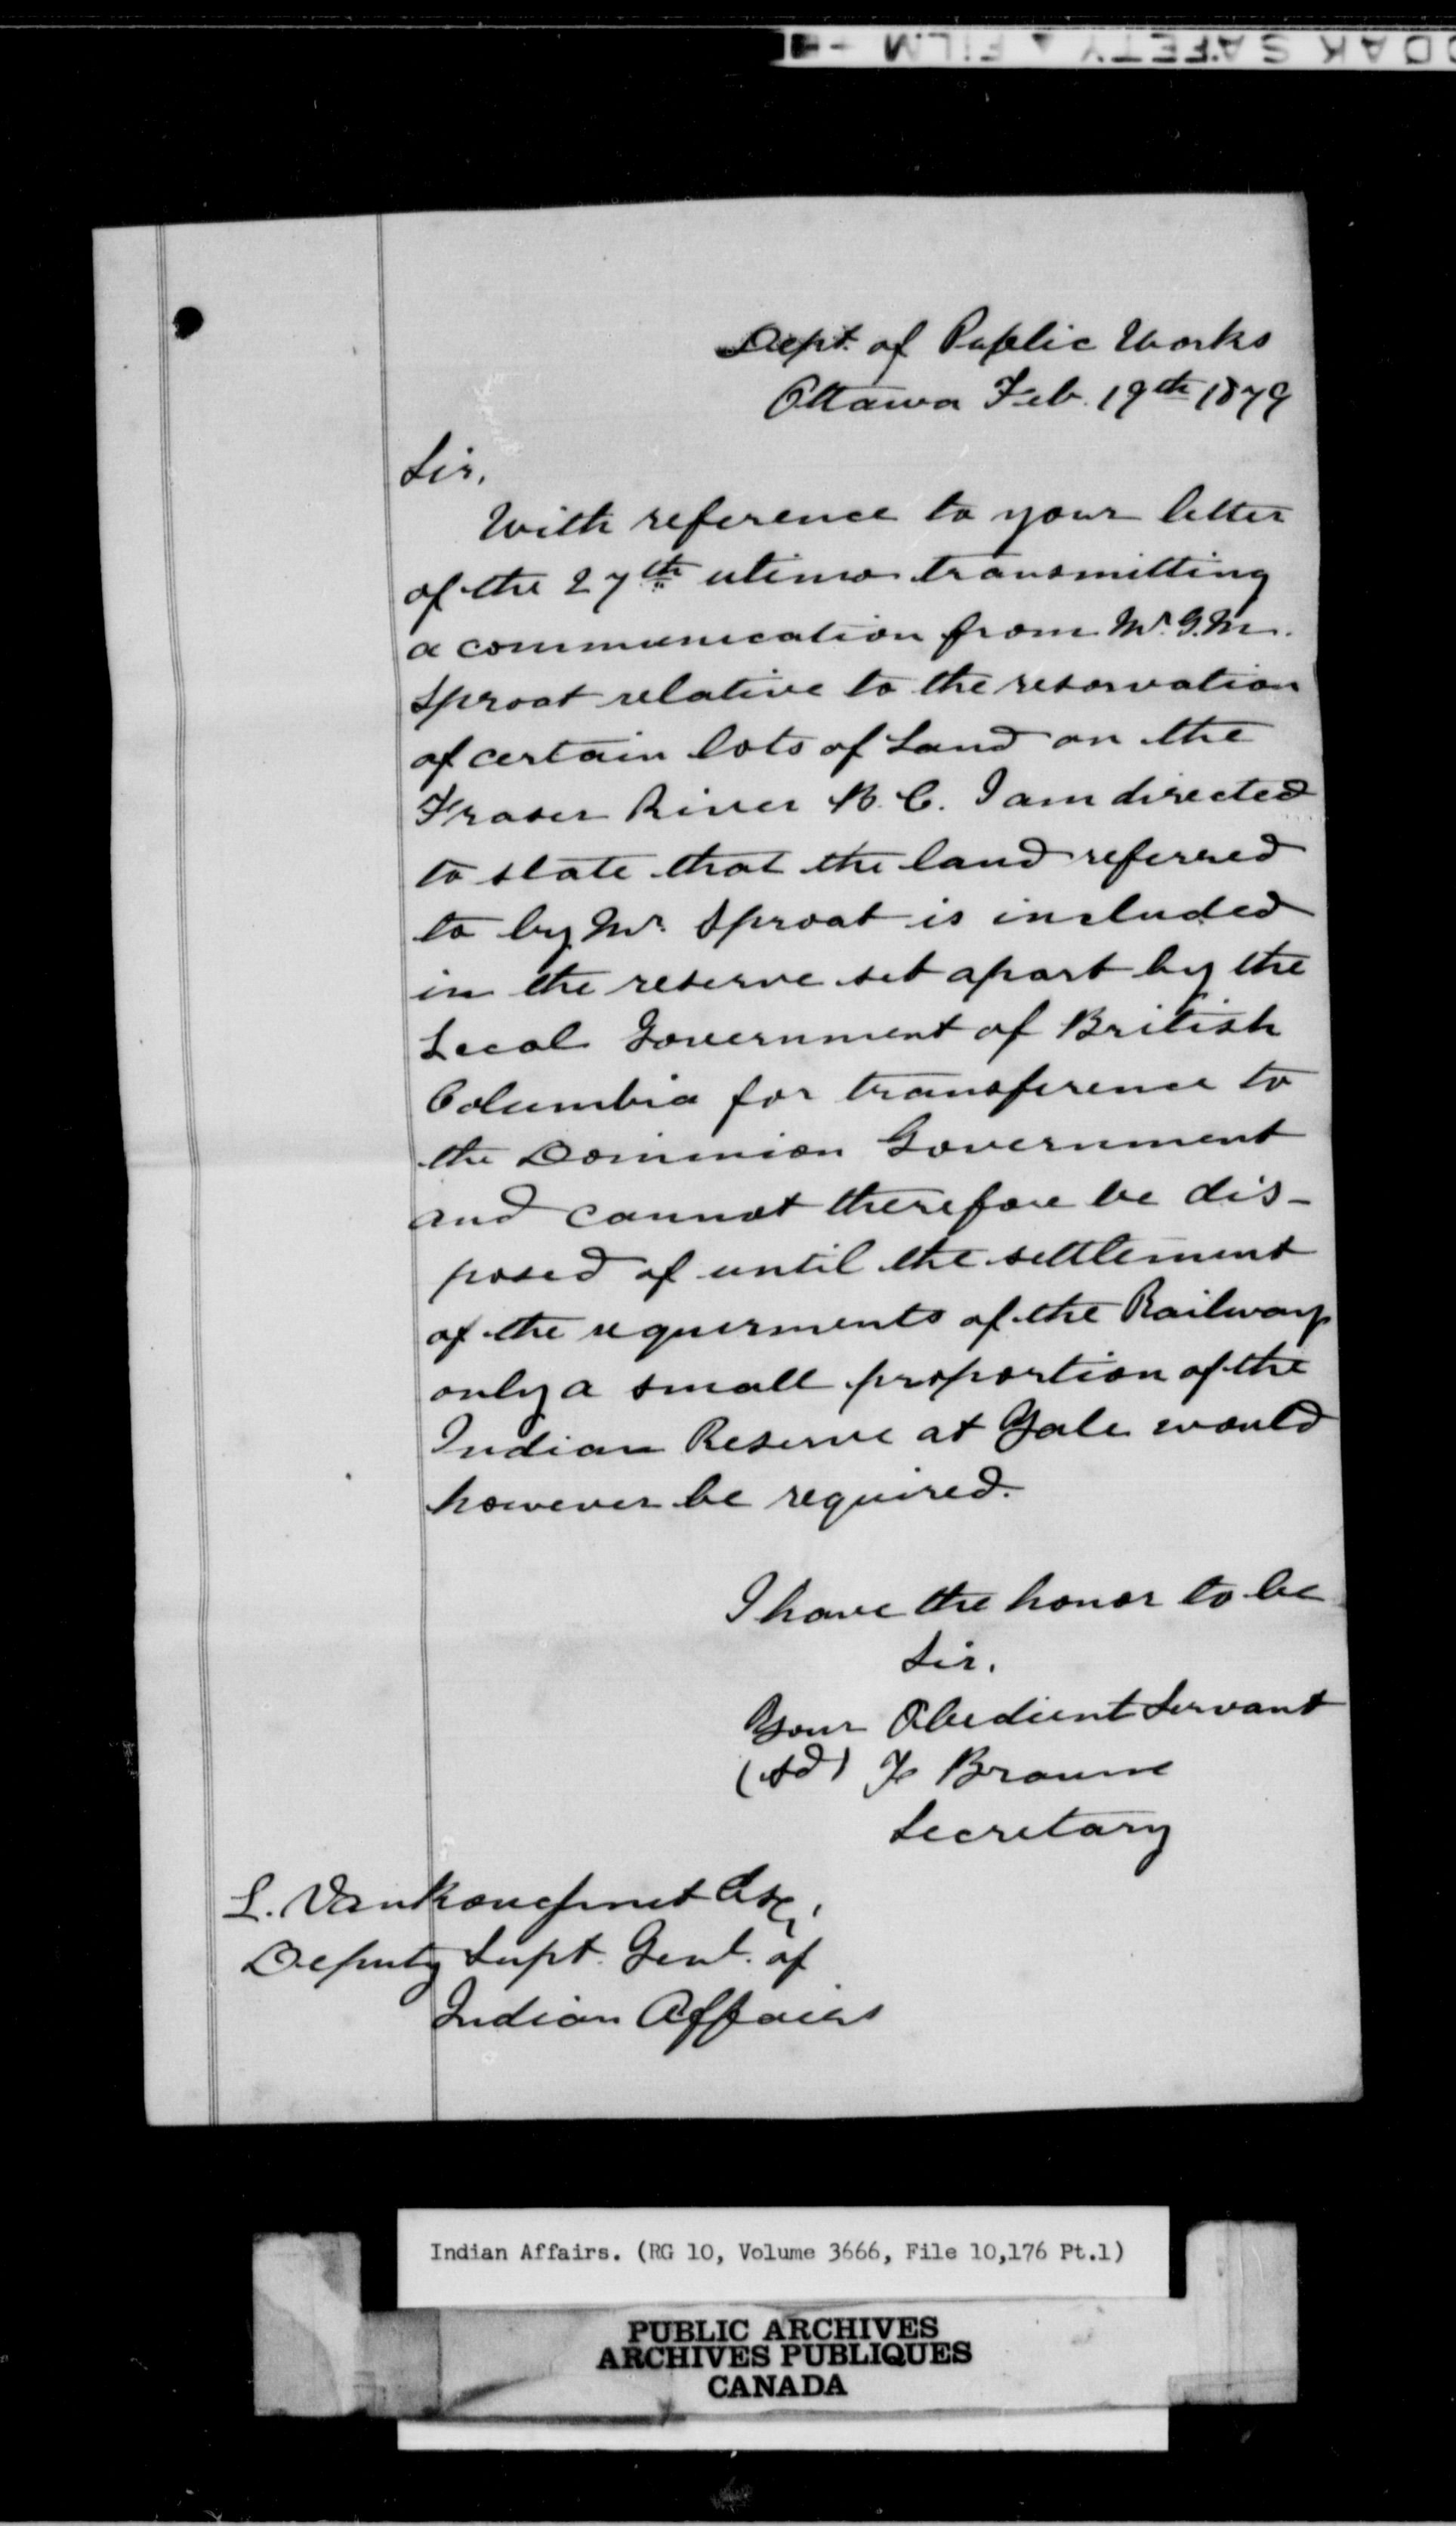 Dept. of Public Works
Ottawa Feb. 19th 1879
Sir,
With reference to your letter
of the 27th ultimo transmitting
a communication from Mr. G.M.
Sproat relative to the reservation
of certain lots of Land on the
Fraser River B.C. I am directed
to state that the land referred
to by Mr. Sproat is included
in the reserve set apart by the
Local Government of British
Columbia for transference to
the Dominion Government
and cannot therefore be dis-
posed of until the settlement
of the requirments of the Railway
only a small proportion of the
Indian Reserve at Yale would
however be required.
I have the honor to be
Sir.
Your Obedient Servant
(sd) F Braun
Secretary
L. Vankoughnet Esq,
Deputy Supt. Genl. of
Indian Affairs
Indian Affairs. (RG 10, Volume 3666, File 10,176 Pt.1)
PUBLIC ARCHIVES
ARCHIVES PUBLIQUES
CANADA